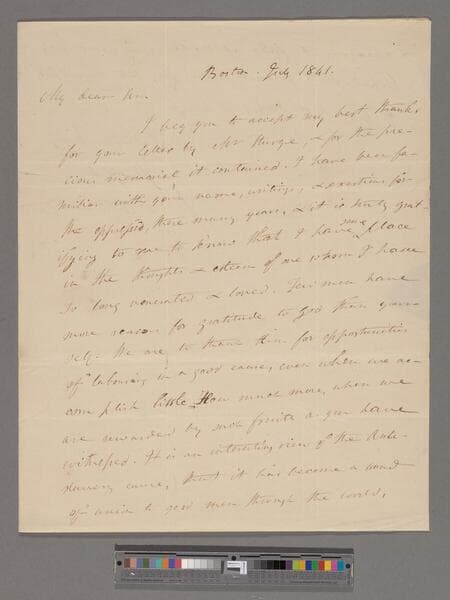 Boston. July 1841.
My dear Sir.
I beg you to accept my best thanks
for your letter by Mr Sturge, & for the pre-
cious memorial it contained. I have been fa-
miliar with your name, writings, & exertions for
the oppressed, these many years, & it is truly grat-
ifying to me to know that I have some place
in the thoughts & esteem of one whom I have
so long venerated & loved. Few men have
more reason for gratitude to God than your-
self. We are to thank him for opportunities
of labouring in a good cause, even when we ac-
complish little. How much more, when we
are rewarded by such fruits as you have
witnessed. It is an interesting view of the Anti-
slavery cause, that it has become a bond
of union to good men through the world,